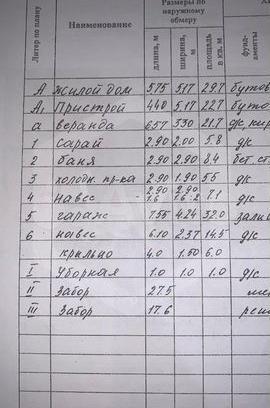 Литер по плану
Наименование
Размеры по наружному обмеру
длина, м
ширина, м
площадь в кв. м
фунд-аменты
А жилой дом 5.75 5.17 29.7 бутов
А₁ Пристрой 4.40 5.17 22.7 бутов
а веранда 6.57 3.30 21.7 д/к, кир
1 сарай 2.90 2.00 5.8 д/к
2 баня 2.90 2.90 8.4 бет. ст
3 холодн. пр-ка 2.90 1.90 5.5 д/к
4 навес 2.90 2.90 7.1 д/к
5 гараж 7.55 4.24 32.0 зали
6 навес 6.10 2.37 14.5 д/к
крыльцо 4.0 1.50 6.0
I Уборная 1.0 1.0 1.0 д/к
II Забор 27.5
III Забор 17.6 реш